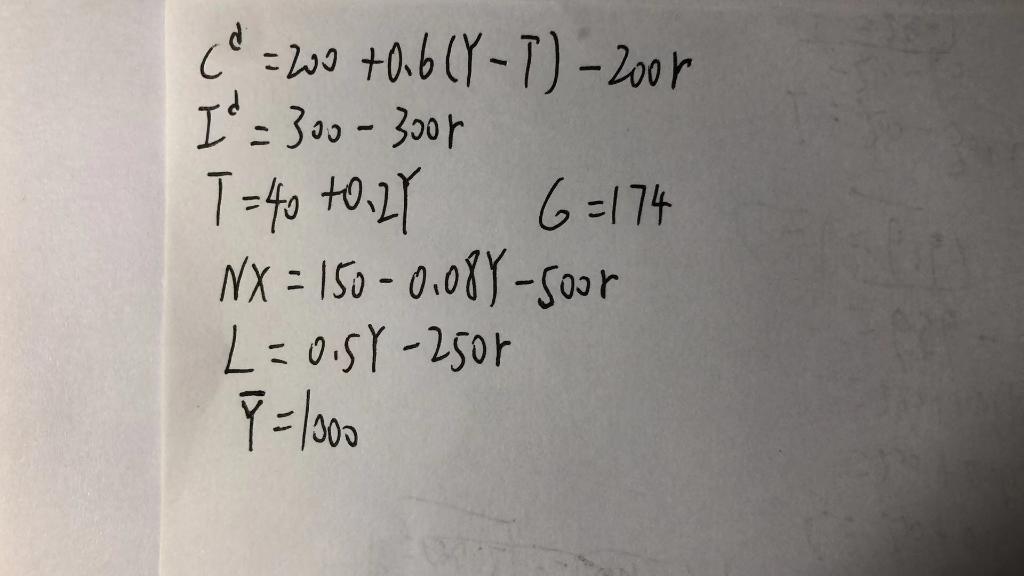 C^d = 200 + 0.6(Y - T) - 200r
I^d = 300 - 300r
T = 40 + 0.2Y G = 174
NX = 150 - 0.08Y - 500r
L = 0.5Y - 250r
Ȳ = 1000